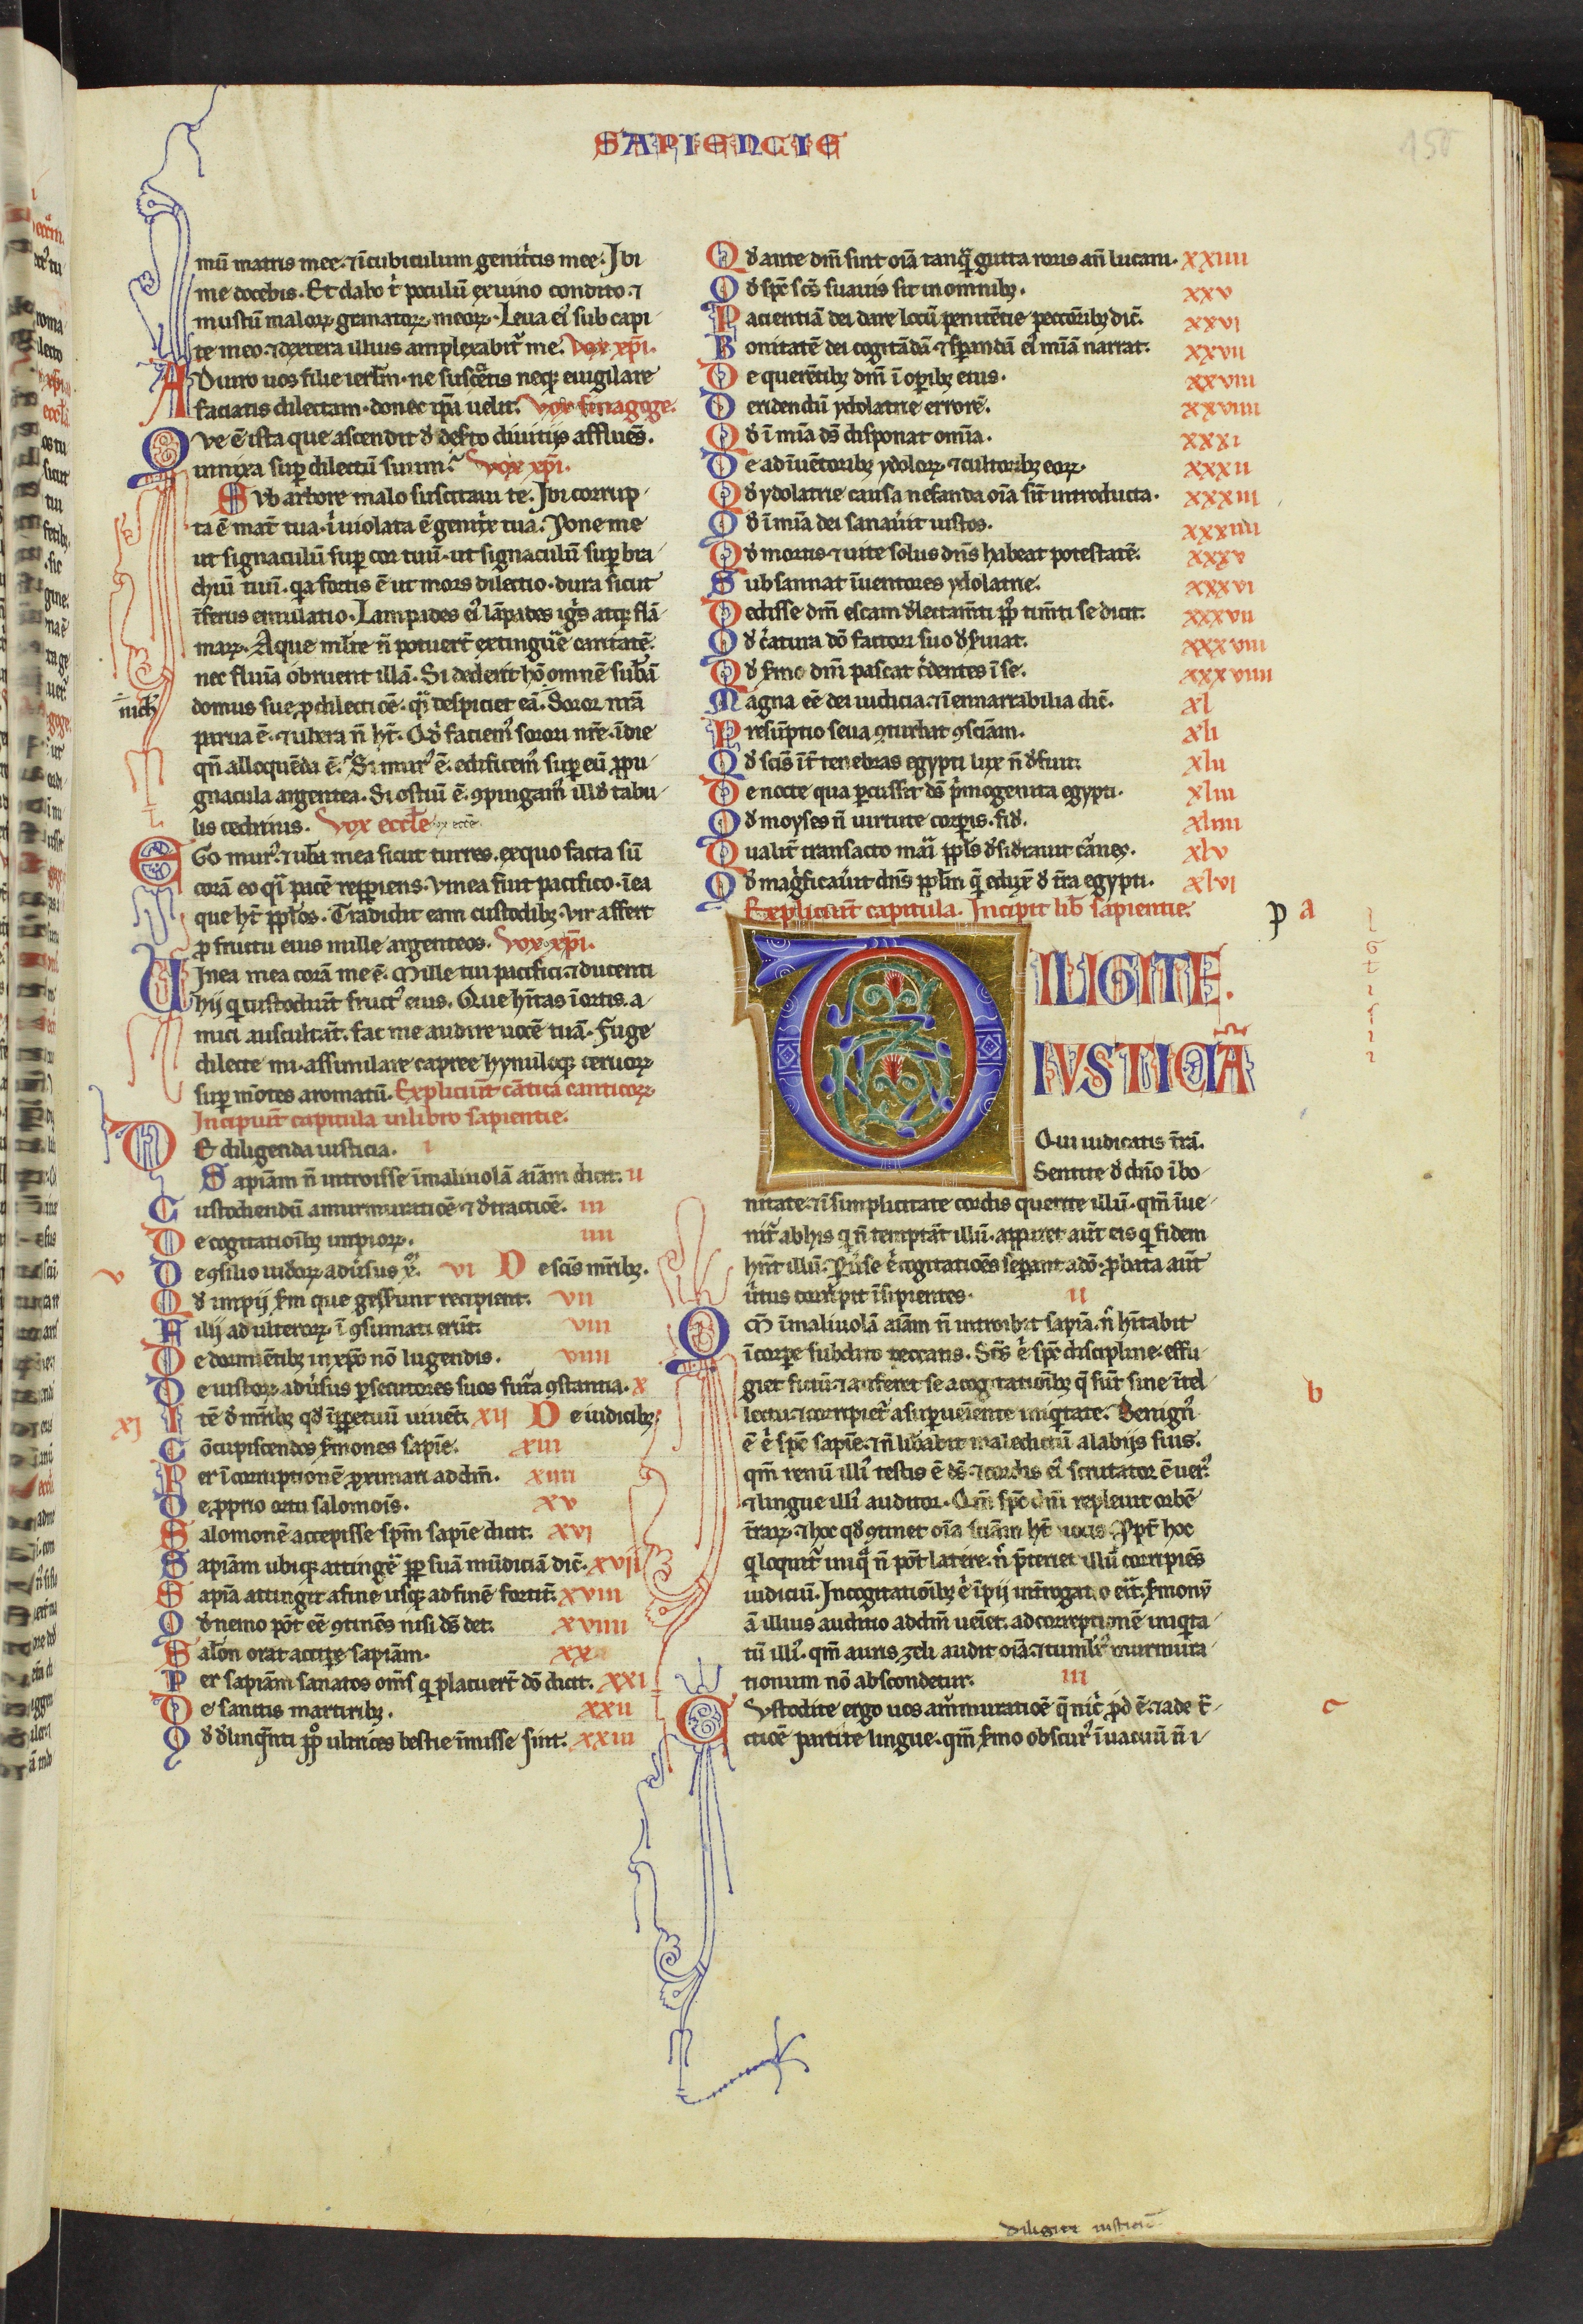 SAPIENCIE
150
mū matris mee. ⁊ ī cubiculum genitͥcis mee. Ibi
me docebis. Et dabo t̄ poculū ex uino condito. ⁊
mustū maloꝝ granatoꝝ meoꝝ. Leua eiꝰ sub capi
te meo. ⁊ dextera illius amplexabit᷑ me. Vox xp̄i.
ADiuro uos filie ierl̄m. ne suscitetis neqꝫ euigilare
faciatis dilectam. donec ip̄a uelit. Vox sinagoge.
Que ē ista que ascendit d̄ deserto diuitijs affluēs.
innixa suꝑ dilectū suum. Vox xp̄i.
Sub arbore malo suscitaui te. Ibi corrup
ta ē mat᷑ tua. ī uiolata ē genitͥx tua. Pone me
ut signaculū suꝑ cor tuū. ut signaculū suꝑ bra
chiū tuū. qͣ fortis ē ut mors dilectio. dura sicut
īferus emulatio. Lampades eiꝰ lāpades igͥs atqꝫ flā
maꝝ. Aque ml̄te n̄ potuer̄t extinguͤe caritatē.
nec flumīa obruent illā. Si dederit hō omnē sub̄am
domus sue ꝓ dilectiōe. qͣi despiciet eā. Soror nr̄a
parua ē. ⁊ ubera n̄ ht̄. Qͥd faciemꝰ sorori nr̄e ī die
qn̄ alloquēda ē. Si murꝰ ē. edificemꝰ suꝑ eū ꝓpu
gnacula argentea. Si ostiū ē. ꝯpingamꝰ illd̄ tabu
lis cedrinis. Vox eccl̄e
EGo murꝰ. ⁊ ub̄a mea sicut turres. ex quo facta sū
corā eo qͣi pacē repp̄iens. Vinea fuit pacifico. ī ea
que ht̄ ppl̄os. Tradidit eam custodibꝫ. Vir affert
ꝓ fructu eius mille argenteos. Vox xp̄i.
VInea mea corā me ē. Mille tui pacifici. ⁊ ducenti
hij qͥ custodiūt fructꝰ eius. Que hītas ī ortis. a
mici auscultāt. fac me audire uocē tuā. Fuge
dilecte mi. assimilare capree hynuloqꝫ ceruoꝝ
suꝑ mōtes aromatū. Expliciūt cātica canticoꝝ.
Incipiūt capitula in libro sapientie.
DE diligenda iusticia. i
Sapiām n̄ introisse ī maliuolā aīam dicit. ii
Custodiendū a murmuratiōe ⁊ d̄tractiōe. iii
De cogitatioībꝫ impioꝝ. iiii
v De ꝯsilio iudeoꝝ aduͥsus xp̄. vi De scīs mr̄ibꝫ.
Qd̄ impij sm̄ que gesserunt recipient. vii
Filij adulteroꝝ ī ꝯsumati erūt. viii
De dormiētibꝫ in xp̄o nō lugendis. viiii
De iustoꝝ aduͥsus ꝑsecutores suos futͣa ꝯstantia. x
xi Itē d̄ mr̄ibꝫ qd̄ īꝑpetuū uiuēt. xii De iudicibꝫ
Cōcupiscendos sm̄ones sapīe. xiii
Per īcorruptionē ꝓximari ad dm̄. xiiii
De ꝓprio ortu salomōis. xv
Salomonē accepisse spm̄ sapīe dicit. xvi
Sapiām ubiqꝫ attingeͤ ꝓpt̄ suā mūdiciā dic̄. xvii
Sapīa attingit a fine usqꝫ ad finē fortit̄. xviii
Qd̄ nemo pōt ēē ꝯtinēs nisi ds̄ det. xviiii
Salōn orat acciꝑe sapiām. xx
Per sapiām sanatos om̄s qͥ placuer̄t dō dicit. xxi
De sanctis martiribꝫ. xxii
Qd̄ d̄linqͣnti ppl̄o ultrices bestie īmisse sint. xxiii
Qd̄ ante dm̄ sint oīa tanqͣ gutta roris an̄ lucani. xxiiii
Qd̄ spc̄ scs̄ suauis sit in omnibꝫ. xxv
Pacientiā dei dare locū penitētie peccatōribꝫ dic̄. xxvi
Bonitatē dei cogitādā. ⁊ sꝑandū eiꝰ mīā narrat. xxvii
De querētibꝫ dm̄ ī oꝑibꝫ eius. xxviii
Deridendū ydolatrie errorē. xxviiii
Qd̄ ī mīa ds̄ disponat omīa. xxxi
De adīuētoribꝫ ydoloꝝ. ⁊ cultoribꝫ eoꝝ. xxxii
Qd̄ ydolatrie causa nefanda oīa sīt introducta. xxxiii
Qd̄ ī mīa dei sanauͥit iustos. xxxiiii
Qd̄ mortis ⁊ uite solus dn̄s habeat potestatē. xxxv
Subsannat īuentores ydolatrie. xxxvi
Dedisse dm̄ escam d̄lectam̄ti ppl̄o tīm̄ti se dicit. xxxvii
Qd̄ cͤatura dō factori suo d̄seruiat. xxxviii
Qd̄ sm̄o dm̄ pascat cͤdentes ī se. xxxviiii
Magna ēē dei iudicia. ⁊ īennarrabilia dic̄. xl
Presūptio seua ꝯturbat ꝯsciām. xli
Qd̄ scīs īt̄ tenebras egypti lux n̄ d̄fuit. xlii
De nocte qua ꝑcussit ds̄ pͥmogenita egypti. xliii
Qd̄ moyses n̄ uirtute corꝑis. xliiii
Qualit̄ transacto mari ppl̄s d̄sid̄rauit carnes. xlv
Qd̄ magͥficauͥit dn̄s ppl̄m qͣ eduxͥ d̄ tͬa egypti. xlvi
Expliciūt capitula. Incipit lib̄ sapientie.
p a
DILIGITE.
IUSTICIĀ
Qui iudicatis tͬrā.
Sentite d̄ dn̄o ī bo
nitate. ⁊ ī simplicitate cordis querite illū. qm̄ īue
nit᷑ ab his qͥ n̄ temptāt illū. apparet aūt eis qͥ fidem
hn̄t illū. Ꝑuͥse eͥ cogitatiōes sepant a dō. ꝓbata aūt
uͥtus corrͥpit īsipientes. ii
QM̄ ī maliuolā aīam n̄ introibit sapīa. nͨ hītabit
ī corꝑe subdito peccatis. Scs̄ eͥ spc̄ discipline. effu
giet fictū. ⁊ auferet se a cogitatioībꝫ q̄ sūt sine ītel
b
lectu. ⁊ corripiet᷑ a suꝑueīente iniqͥtate. Benignꝰ
ē eͥ spc̄ sapīe. ⁊ n̄ lib̄abit maledictū a labijs suis.
qm̄ renū illiꝰ testis ē ds̄. ⁊ cordis eiꝰ scrutator ē uerꝰ.
⁊ lingue illiꝰ auditor. Qm̄ spc̄ dn̄i repleuit orbē
tͬraꝝ. ⁊ hoc qd̄ ꝯtinet oīa sciām ht̄ uocis. Ppt̄ hoc
qͥ loquit᷑ iniqͣ n̄ pōt latere. nͨ pͤteriet illū corripiēs
iudiciū. In cogitatioībꝫ eͥ īpij int̄rogatio eͥit. sm̄onū
aū illius auditio ad dm̄ ueīet. ad correptionē iniqͥta
tū illiꝰ. qm̄ auris zeli audit oīa. ⁊ tumultꝰ murmura
tionum nō abscondetur. iii
CUstodite ergo uos a murmuratiōe q̄ nicͥ ꝓd ē. ⁊ a detͬ
c
ctiōe parcite lingue. qm̄ sm̄o obscurꝰ ī uacuū n̄ i
diligite iusticiā